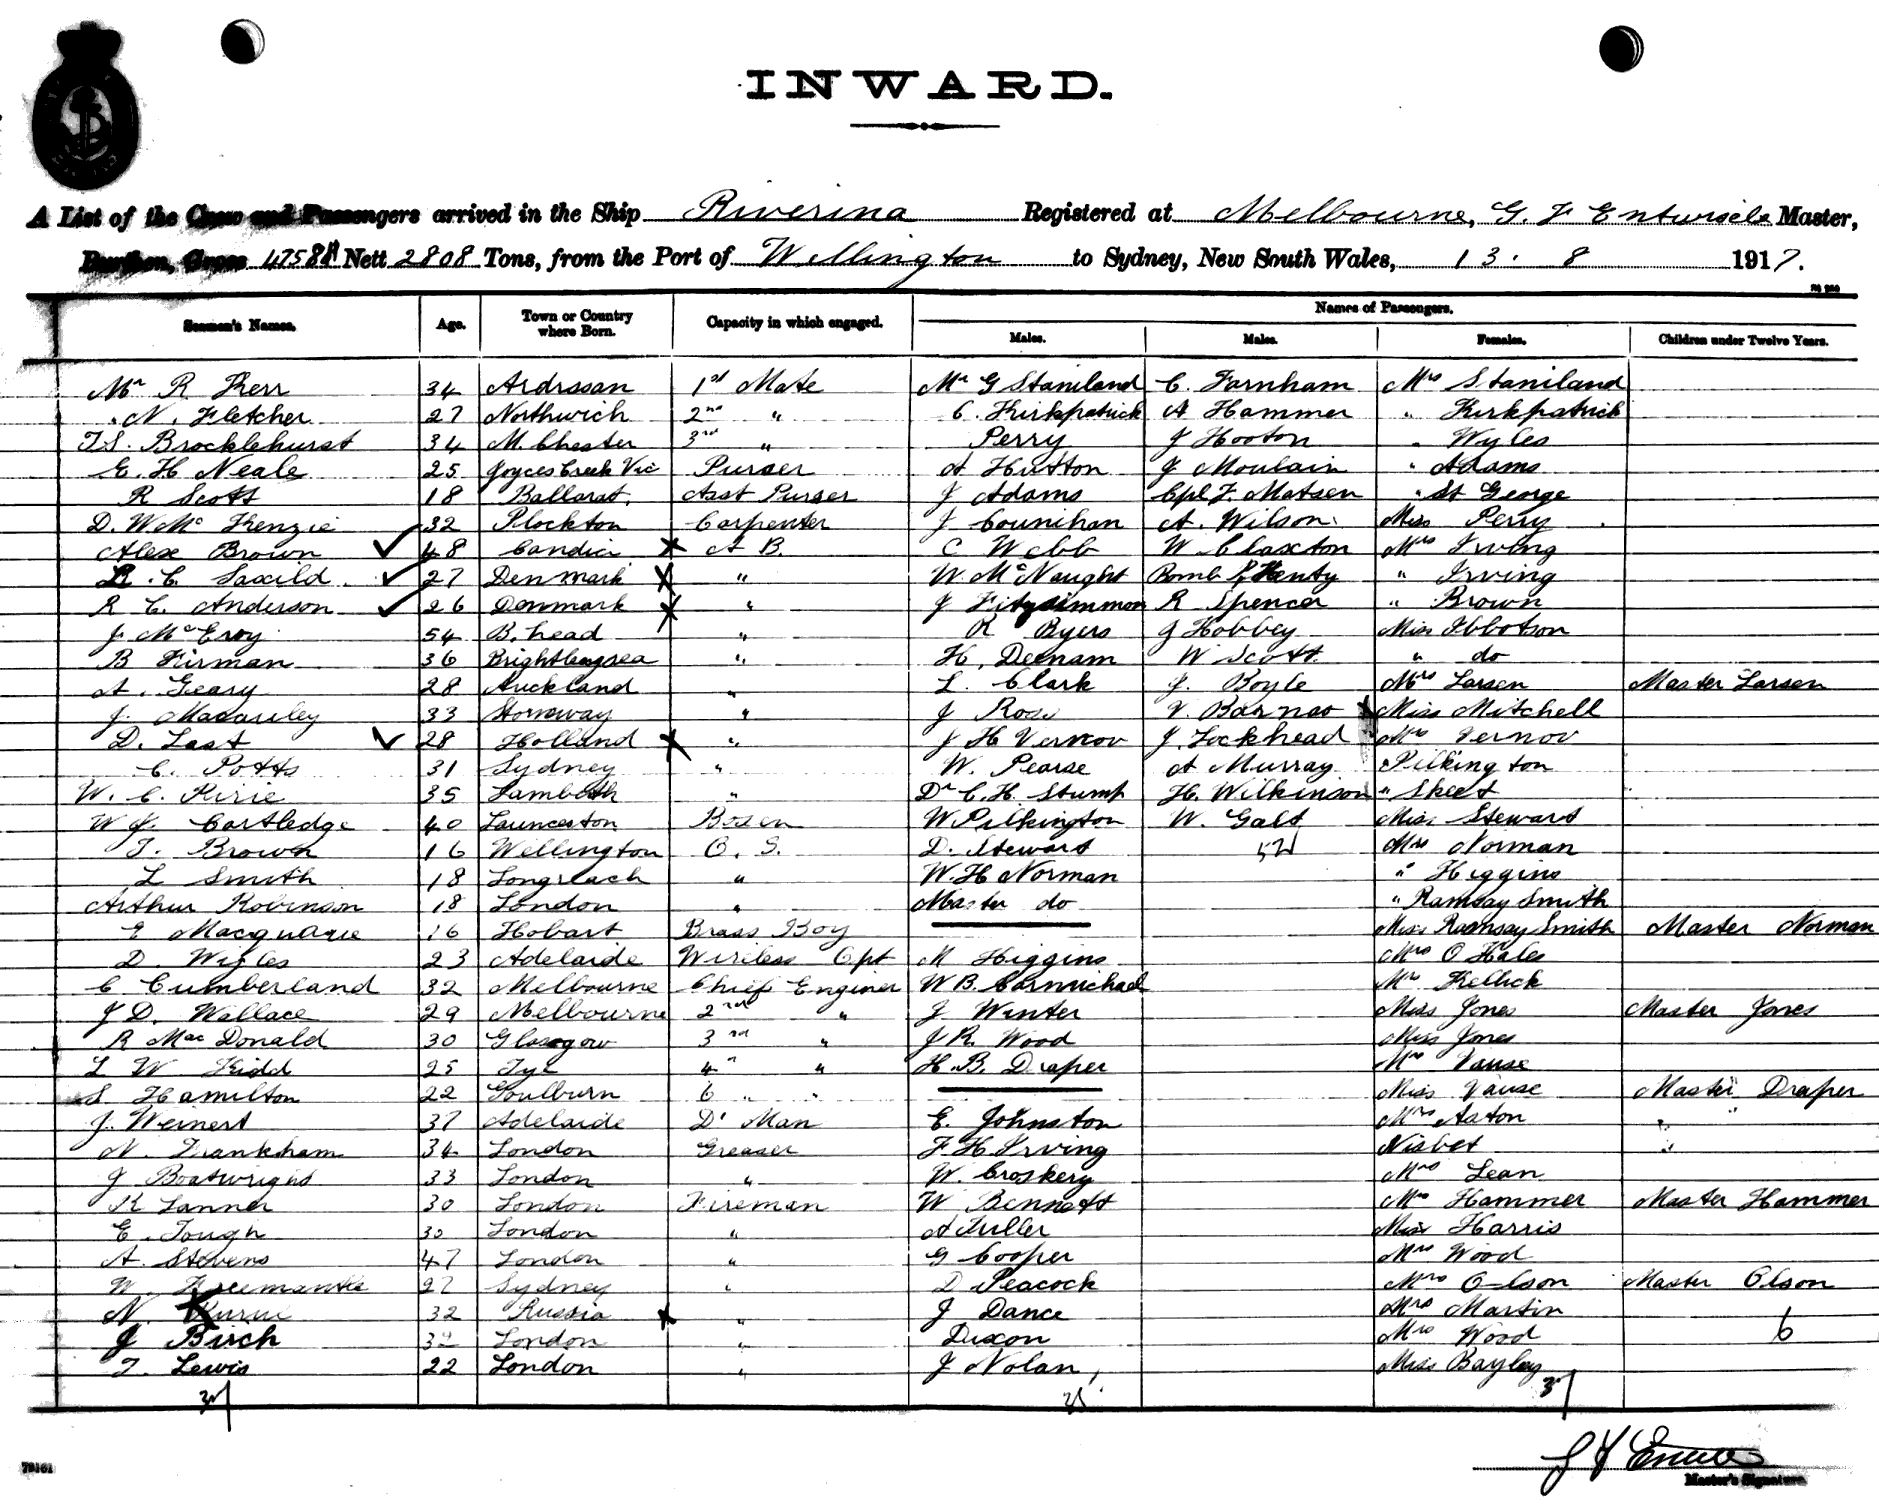 INWARD.
A List of the Crew and Passengers arrived in the Ship Riverina Registered at Melbourne, G. F Entwisele Master,
Burthen, Gross Nett 2808 Tons, from the Port of Wellington to Sydney, New South Wales, 13. 8 1917.
Names of Passengers.
Seamen's Names. Age. Town or Country where Born. Capacity in which engaged. Males. Males. Females. Children under Twelve Years.
Mr R Kerr 34 Ardrssan 1st Mate Mr G Staniland C. Farnham Mrs Staniland
" N. Fletcher 27 Northwich 2nd " C. Kirkpatrick A Hammer " Kirkpatrick
T.S. Brocklehurst 34 M. Chester 3rd " Perry J Hooton " Wyles
E. H Neale 25 Joyces Creek Vic Purser A Hutton J Moulain " Adams
R Scott 18 Ballarat. Asst Purser J Adams Cpl F. Matsen " St George
D. W Mc Kenzie 32 Plockton Carpenter J Counihan A. Wilson. Miss Perry
Alex Brown 48 Candia A B. C Webb W Claxton Mrs Irving
R. C. Saxild 27 Denmark " W. McNaught Bomb Henty " Irving
R C. Anderson 26 Denmark " J Fitzsimmon R Spencer " Brown
J McEroy 54 B. head " R Byers J Hobbey Miss Ibbotson
B Firman 36 Brightlingsea " H. Deenam W Scott " do
A. Geary 28 Auckland " L. Clark J. Boyle Mrs Larsen Master Larsen
J. Macauley 33 Stornoway " J Ross V. Barnao Miss Mitchell
D. Last 28 Holland " J H Vernov J. Lockhead Mrs Vernov
C. Potts 31 Sydney " W. Pearse A Murray Pilkington
W. C. Pirie 35 Lambeth " Dr C. H. Stump H. Wilkinson " Skeet
W J. Cartledge 40 Launceston Bosen W Pilkington W. Galt Miss Stewart
T. Brown 16 Wellington O. S. D. Stewart 52 Mrs Norman
L Smith 18 Longreach " W. H Norman " Higgins
Arthur Robinson 18 London " Master do " Ramsay Smith
E Macquarie 16 Hobart Brass Boy Miss Ramsay Smith Master Norman
D. Wyles 23 Adelaide Wireless Opt M Higgins Mrs O Hales
C Cumberland 32 Melbourne Chief Enginer W B. Carmichael Mrs Kellick
J D. Wallace 29 Melbourne 2nd " J Winter Miss Jones Master Jones
R MacDonald 30 Glasgow 3rd " J R. Wood Miss Jones
L W Kidd 25 4th " H. B. Draper Mrs Vause
S Hamilton 22 Goulburn 6 " " Miss Vause Master Draper
J. Weinert 37 Adelaide Dr Man E. Johnston Mrs Aston " "
N. Frankham 34 London Greaser F. H Irving Nisbet "
J Boatwright 33 London " W. Croskery Mrs Lean
R Lanner 30 London Fireman W Bennett Mrs Hammer Master Hammer
E. Tough 30 London " A Fuller Miss Harris
A. Stevens 47 London " G Cooper Mrs Wood
W. Freemantle 27 Sydney " D Peacock Mrs Olson Master Olson
N. 32 Russia " J Dance Mrs Martin
J Birch London " Dixon Mrs Wood 6
T. Lewis 22 London " J Nolan Miss Bayley
37 37
Master's Signature.